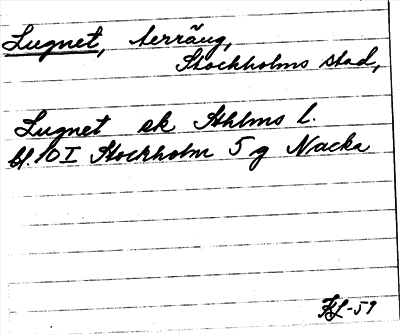 Lugnet, terräng,
Stockholms stad,
Lugnet ek Sthlms l.
bl. 10 I Stockholm 5 g Nacka
-59